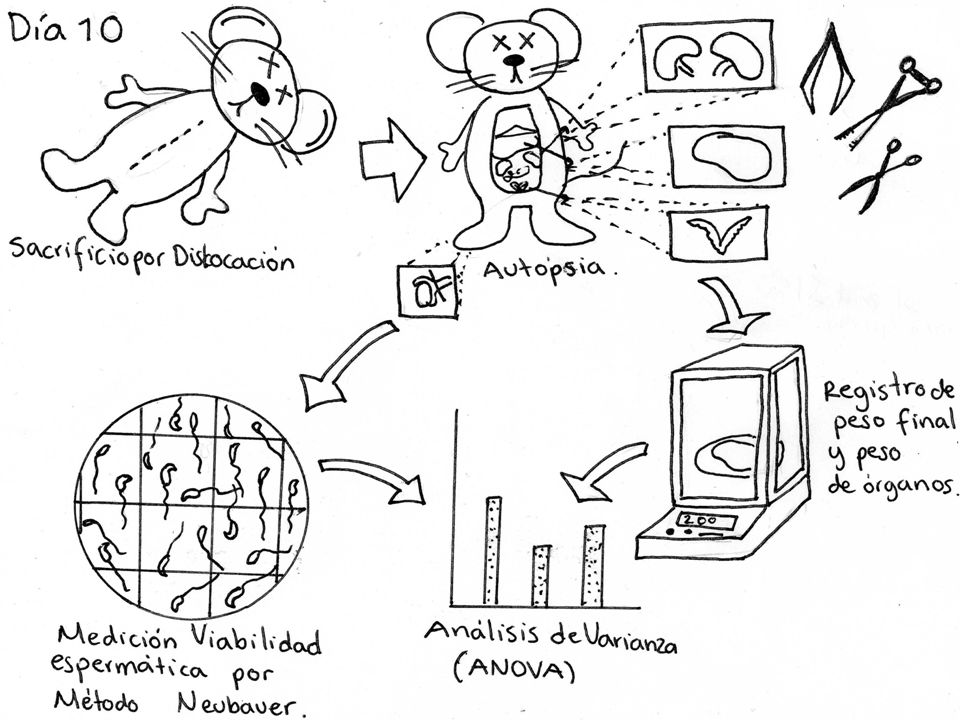 Día 10
Sacrificio por Dislocación
Autópsia.
Registro de
peso final
y peso
de órganos.
200
Medición Viabilidad
espermática por
Método Neubauer.
Análisis de Varianza
(ANOVA)